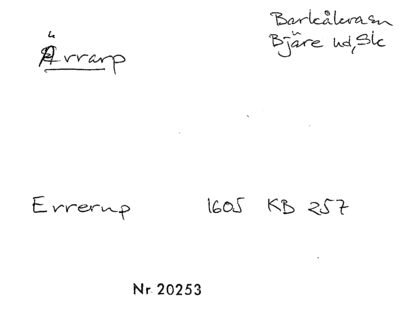 Barkåkra sn
Bjäre hd, Sk
Ärrarp
Errerup 1605 KB 257
Nr 20253